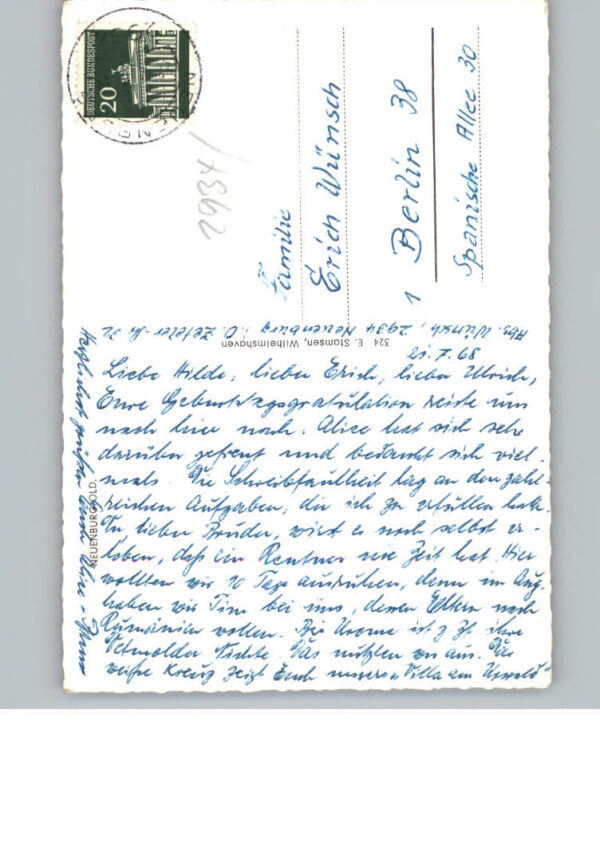 DEUTSCHE BUNDESPOST
20
2934
Familie
Erich Wünsch
1 Berlin 38
Spanische Allee 30
Abs. Wünsch, 2934 Neuenburg i. O. Zeteler Str. 32
324 E. Stamsen, Wilhelmshaven
NEUENBURG OLD.
21.7.68
Liebe Hilde, lieber Erich, lieber Ulrich,
Eure Geburtstagsgratulation reiste uns
nach hier nach. Alice hat sich sehr
darüber gefreut und bedankt sich viel-
mals. Die Schreibfaulheit lag an den zahl-
reichen Aufgaben, die ich zu erfüllen hatte.
Du lieber Bruder, wirst es noch selbst er-
leben, daß ein Rentner nie Zeit hat. Hier
wollten wir 10 Tage ausruhen, denn im Aug.
haben wir Tim bei uns, dessen Eltern nach
Rumänien wollen. Bei Uroma ist z. Zt. ihre
Detmolder Nichte. Das nutzten wir aus. Das
weiße Kreuz zeigt Euch unsere "Villa am Urwald"
Herzlichst grüßen Euch Alice +